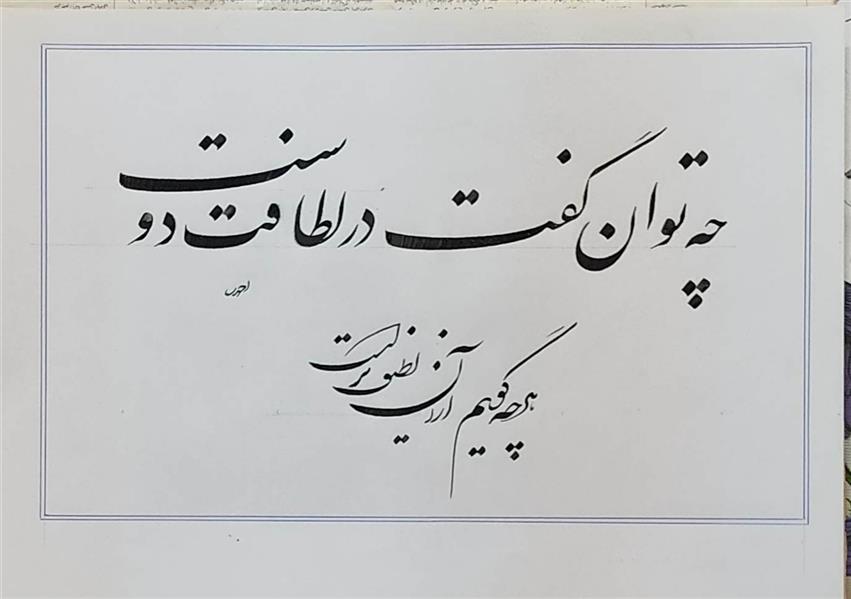 چه توان گفت در لطافت دوست
هرچه گویم از آن لطیف‌ترست